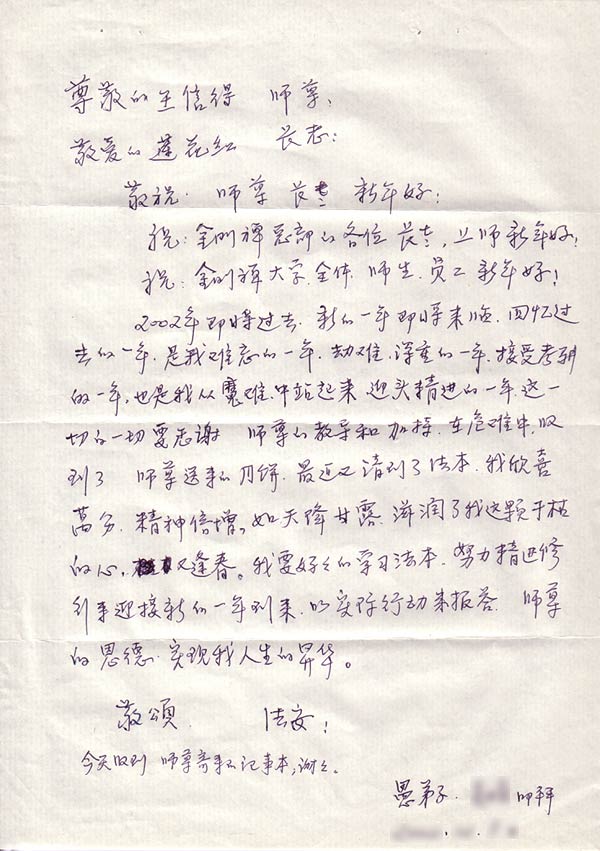 尊敬的王信得 师尊:
敬爱的莲花红 长老:
敬祝: 师尊 长老 新年好!
祝: 金刚禅总部的各位 长老, 上师新年好!
祝: 金刚禅大学.全体 师生.员工 新年好!
2002年即将过去. 新的一年即将来临. 回忆过
去的一年, 是我难忘的一年. 劫难. 深重的一年. 接受考验
的一年, 也是我从魔难.中站起来 迎头精进的一年. 这一
切的一切要感谢 师尊的教导和加持. 在危难中. 收
到了 师尊送来的月饼. 最近又请到了法本. 我欣喜
萬分. 精神倍增, 如天降甘露. 滋润了我这颗干枯
的心, 又逢春。我要好々的学习法本. 努力精进修
到来迎接新的一年到来. 以实际行动来报答. 师尊
的恩德. 实现我人生的昇华。
敬頌. 法安!
今天收到 师尊寄来的记事本, 谢々。
愚弟子.